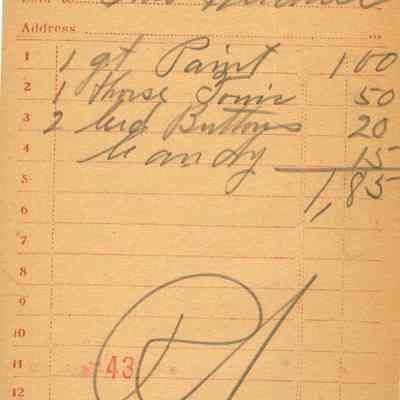 Address
1 1 qt Paint 1 00
2 1 horse Tonic 50
3 2 Buttons 20
4 Candy 15
5 1,85
6
7
8
9
10
11 43
12